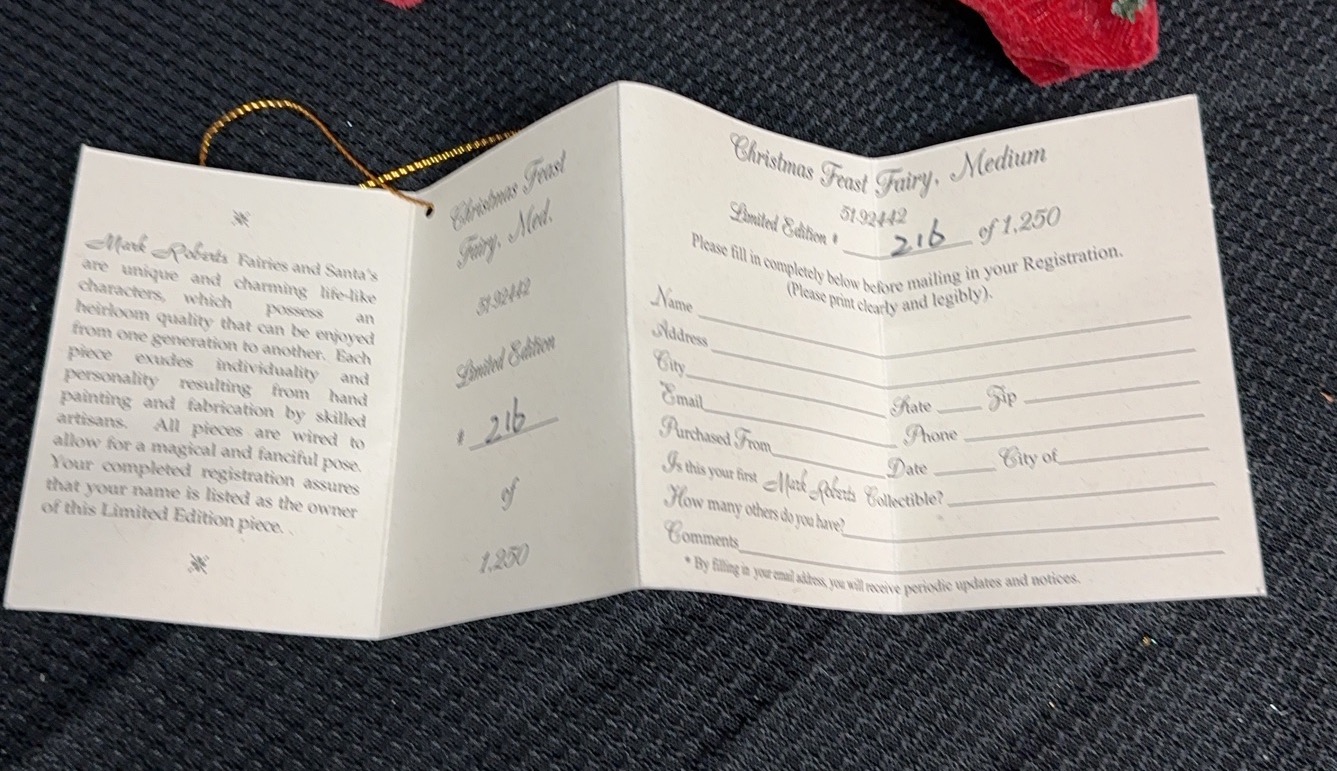 Mark Roberts Fairies and Santa's
are unique and charming life-like
characters, which possess an
heirloom quality that can be enjoyed
from one generation to another. Each
piece exudes individuality and
personality resulting from hand
painting and fabrication by skilled
artisans. All pieces are wired to
allow for a magical and fanciful pose.
Your completed registration assures
that your name is listed as the owner
of this Limited Edition piece.
Christmas Feast
Fairy, Med.
51-92442
Limited Edition
# 216
of
1,250
Christmas Feast Fairy, Medium
51-92442
Limited Edition # 216 of 1,250
Please fill in completely below before mailing in your Registration.
(Please print clearly and legibly).
Name
Address
City State Zip
Email Phone
Purchased From Date City of
Is this your first Mark Roberts Collectible?
How many others do you have?
Comments
* By filling in your email address, you will receive periodic updates and notices.